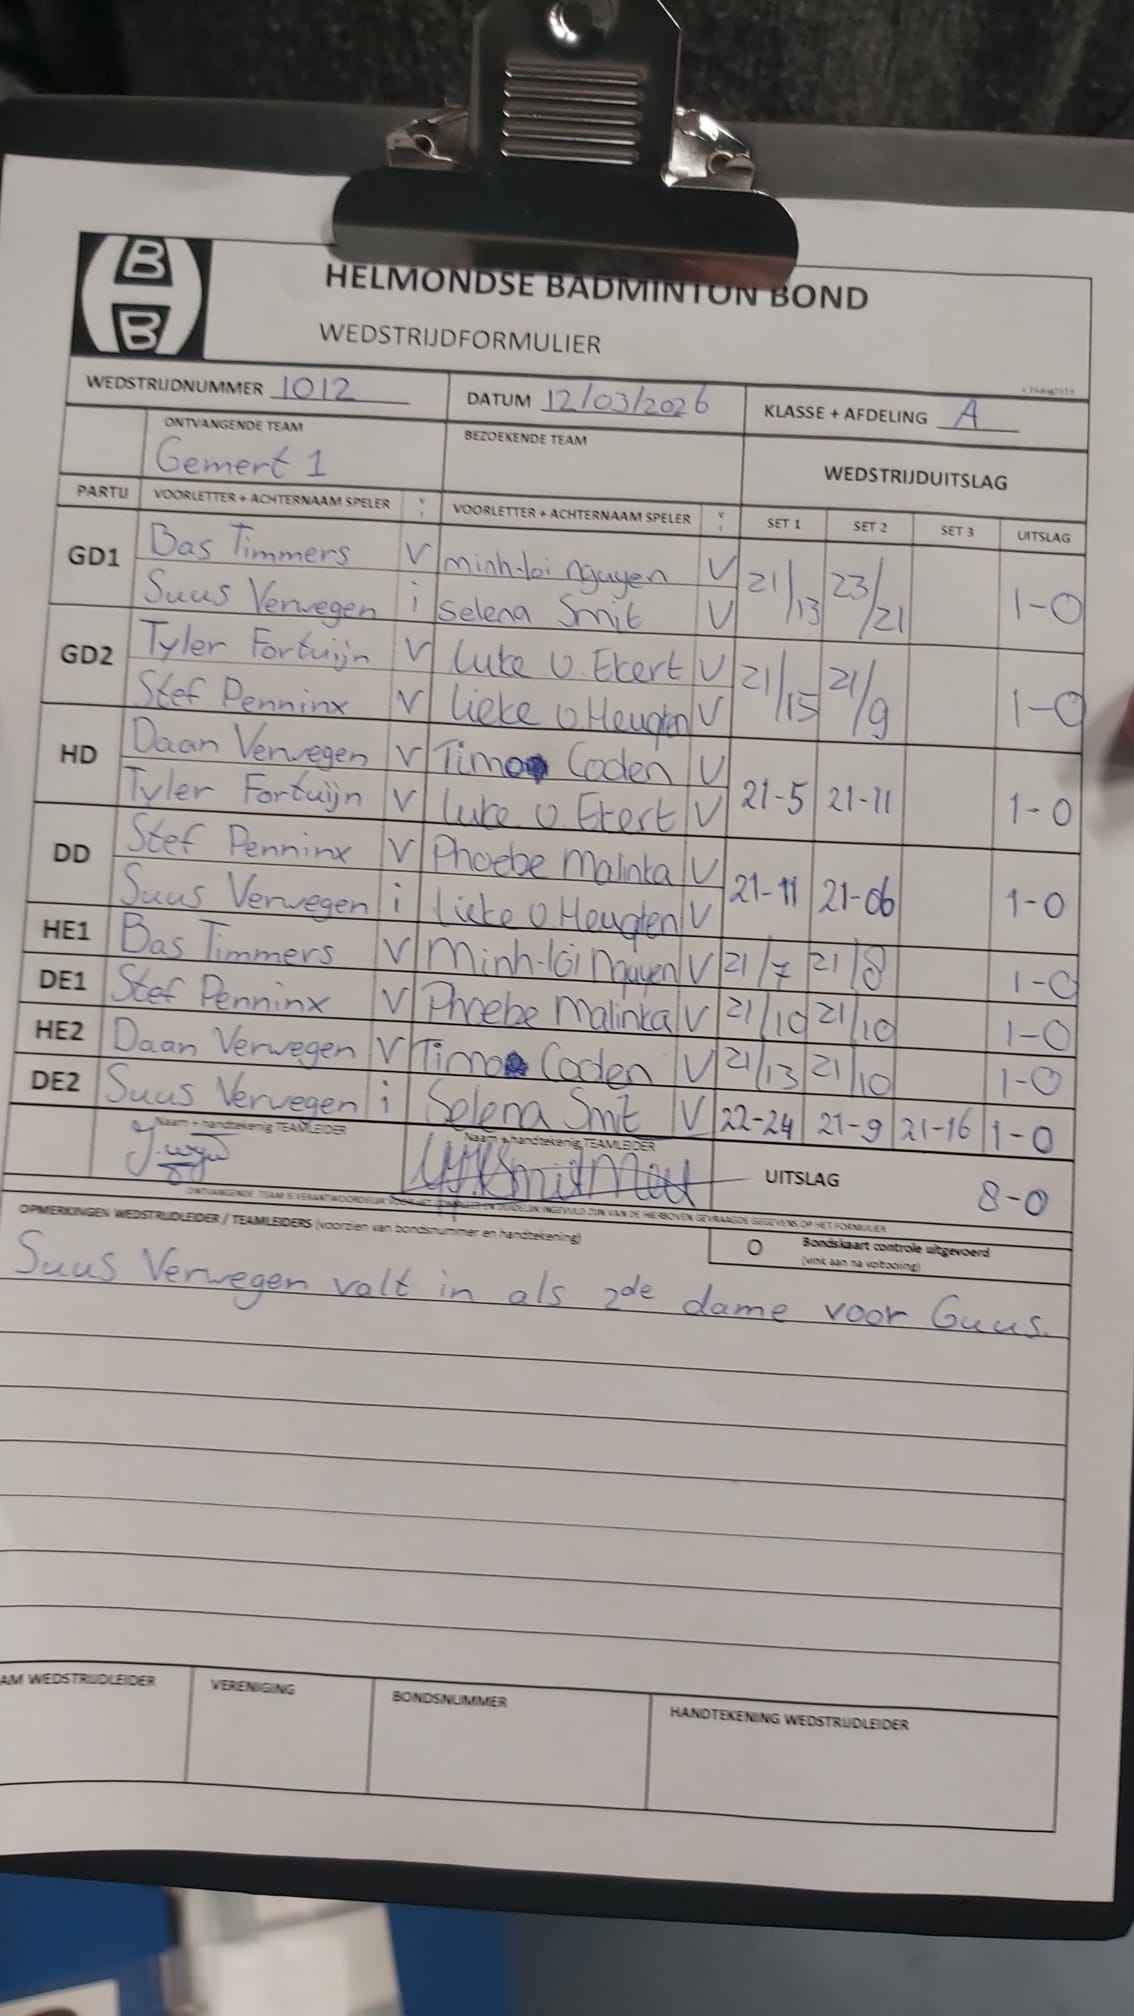 B
B
HELMONDSE BADMINTON BOND
WEDSTRIJDFORMULIER
WEDSTRIJDNUMMER 1012 DATUM 12/03/2026 KLASSE + AFDELING A
ONTVANGENDE TEAM BEZOEKENDE TEAM WEDSTRIJDUITSLAG
Gemert 1
PARTIJ VOORLETTER + ACHTERNAAM SPELER V I VOORLETTER + ACHTERNAAM SPELER V I SET 1 SET 2 SET 3 UITSLAG
GD1 Bas Timmers V minh-loi nguyen V 21/13 23/21 1-0
Suus Verwegen i Selena Smit V
GD2 Tyler Fortuijn V Luke v. Ekert V 21/15 21/9 1-0
Stef Penninx V Lieke v. Heugten V
HD Daan Verwegen V Timo Coden V 21-5 21-11 1-0
Tyler Fortuijn V Luke v. Ekert V
DD Stef Penninx V Phoebe Malinka V 21-11 21-06 1-0
Suus Verwegen i Lieke v. Heugten V
HE1 Bas Timmers V Minh-lôi Nguyen V 21/7 21/8 1-0
DE1 Stef Penninx V Phoebe Malinka V 21/10 21/10 1-0
HE2 Daan Verwegen V Timo Coden V 21/13 21/10 1-0
DE2 Suus Verwegen i Selena Smit V 22-24 21-9 21-16 1-0
Naam + handtekenig TEAMLEIDER Naam + handtekenig TEAMLEIDER UITSLAG 8-0
ONTVANGENDE TEAM IS VERANTWOORDELIJK DEZE GEGEVENS OP HET FORMULIER
OPMERKINGEN WEDSTRIJDLEIDER / TEAMLEIDERS (voorzien van bondsnummer en handtekening)
O Bondskaart controle uitgevoerd
(vink aan na voltooiing)
Suus Verwegen valt in als 2de dame voor Guus.
AM WEDSTRIJDLEIDER VERENIGING BONDSNUMMER HANDTEKENING WEDSTRIJDLEIDER